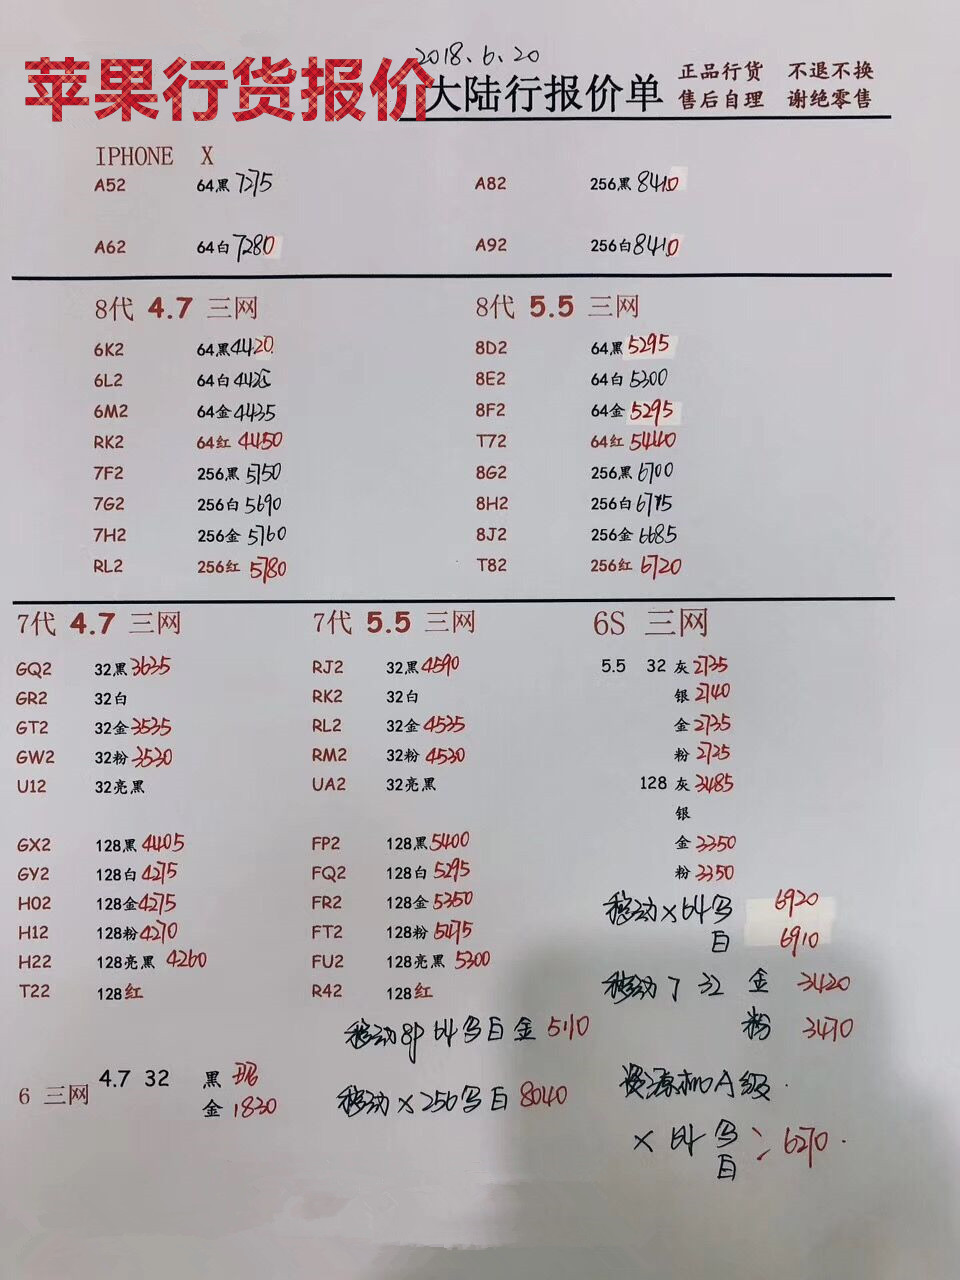 2018.6.20
苹果行货报价
大陆行报价单
正品行货 不退不换
售后自理 谢绝零售
IPHONE X
A52 64黑 7275 A82 256黑 8410
A62 64白 7280 A92 256白 8410
8代 4.7 三网 8代 5.5 三网
6K2 64黑 4420 8D2 64黑 5295
6L2 64白 4425 8E2 64白 5300
6M2 64金 4435 8F2 64金 5295
RK2 64红 4450 T72 64红 5440
7F2 256黑 5750 8G2 256黑 6700
7G2 256白 5690 8H2 256白
7H2 256金 5760 8J2 256金 6685
RL2 256红 5780 T82 256红 6720
7代 4.7 三网 7代 5.5 三网 6S 三网
GQ2 32黑 3635 RJ2 32黑 4590 5.5 32 灰 2735
GR2 32白 RK2 32白 银 2740
GT2 32金 3535 RL2 32金 4535 金 2735
GW2 32粉 3530 RM2 32粉 4530 粉 2725
U12 32亮黑 UA2 32亮黑 128 灰 3485
银
GX2 128黑 4405 FP2 128黑 5400 金 3350
GY2 128白 4275 FQ2 128白 5295 粉 3350
H02 128金 4275 FR2 128金 5350 移动X64 6920
H12 128粉 4270 FT2 128粉 5175 白 6910
H22 128亮黑 4260 FU2 128亮黑 5300
T22 128红 R42 128红 移动7 32 金 3420
移动8P 64 白金 5110 粉 3470
6 三网 4.7 32 黑 资源机A级
金 1830 移动X256 白 8040
X 64 白 6270